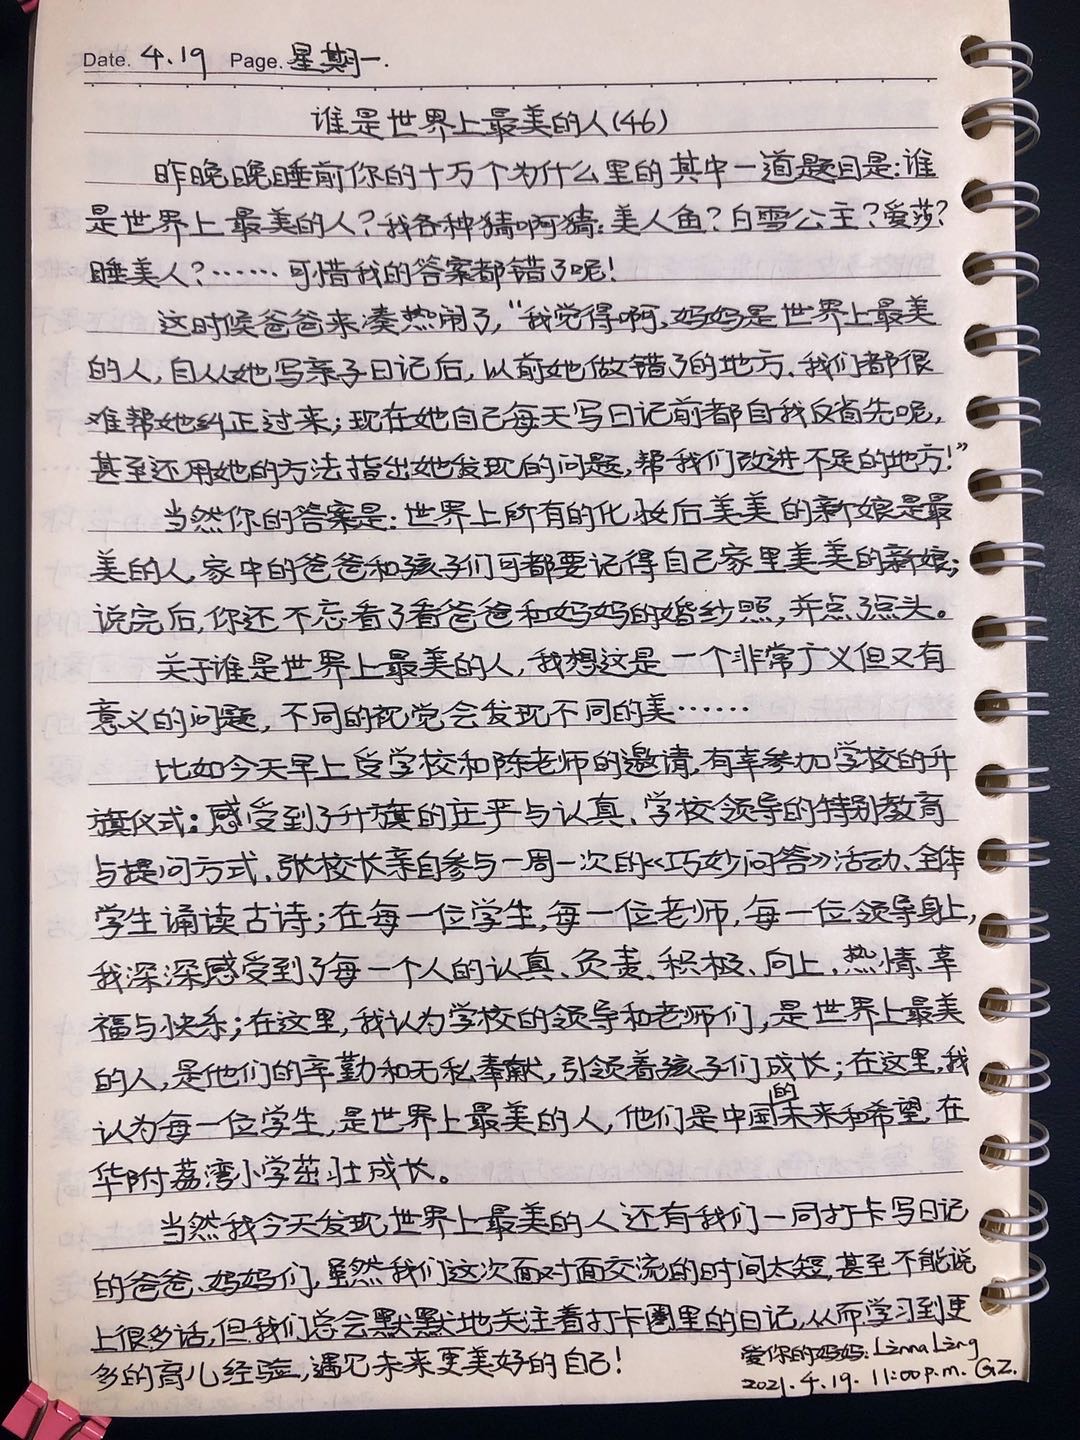 Date. 4.19 Page. 星期一.
谁是世界上最美的人(46)
昨晚晚睡前你的十万个为什么里的其中一道题目是:谁
是世界上最美的人?我各种猜啊猜:美人鱼?白雪公主?爱莎?
睡美人?……可惜我的答案都错了呢!
这时候爸爸来凑热闹了,“我觉得啊,妈妈是世界上最美
的人,自从她写亲子日记后,以前她做错了的地方、我们都很
难帮她纠正过来;现在她自己每天写日记前都自我反省先呢,
甚至还用她的方法指出她发现的问题,帮我们改进不足的地方!”
当然你的答案是:世界上所有的化妆后美美的新娘是最
美的人,家中的爸爸和孩子们可都要记得自己家里美美的新娘;
说完后,你还不忘看了看爸爸和妈妈的婚纱照,并点了点头。
关于谁是世界上最美的人,我想这是一个非常广义但又有
意义的问题,不同的视觉会发现不同的美……
比如今天早上受学校和陈老师的邀请,有幸参加学校的升
旗仪式:感受到了升旗的庄严与认真、学校领导的特别教育
与提问方式、张校长亲自参与一周一次的《巧妙问答》活动、全体
学生诵读古诗;在每一位学生,每一位老师,每一位领导身上,
我深深感受到了每一个人的认真、负责、积极、向上,热情、幸
福与快乐;在这里,我认为学校的领导和老师们,是世界上最美
的人,是他们的辛勤和无私奉献,引领着孩子们成长;在这里,我
认为每一位学生,是世界上最美的人,他们是中国的未来和希望,在
华附荔湾小学茁壮成长。
当然我今天发现,世界上最美的人还有我们一同打卡写日记
的爸爸、妈妈们,虽然我们这次面对面交流的时间太短,甚至不能说
上很多话,但我们总会默默地关注着打卡圈里的日记,从而学习到更
多的育儿经验,遇见未来更美好的自己!
爱你的妈妈:Linna Ling
2021.4.19. 11:00p.m. GZ.